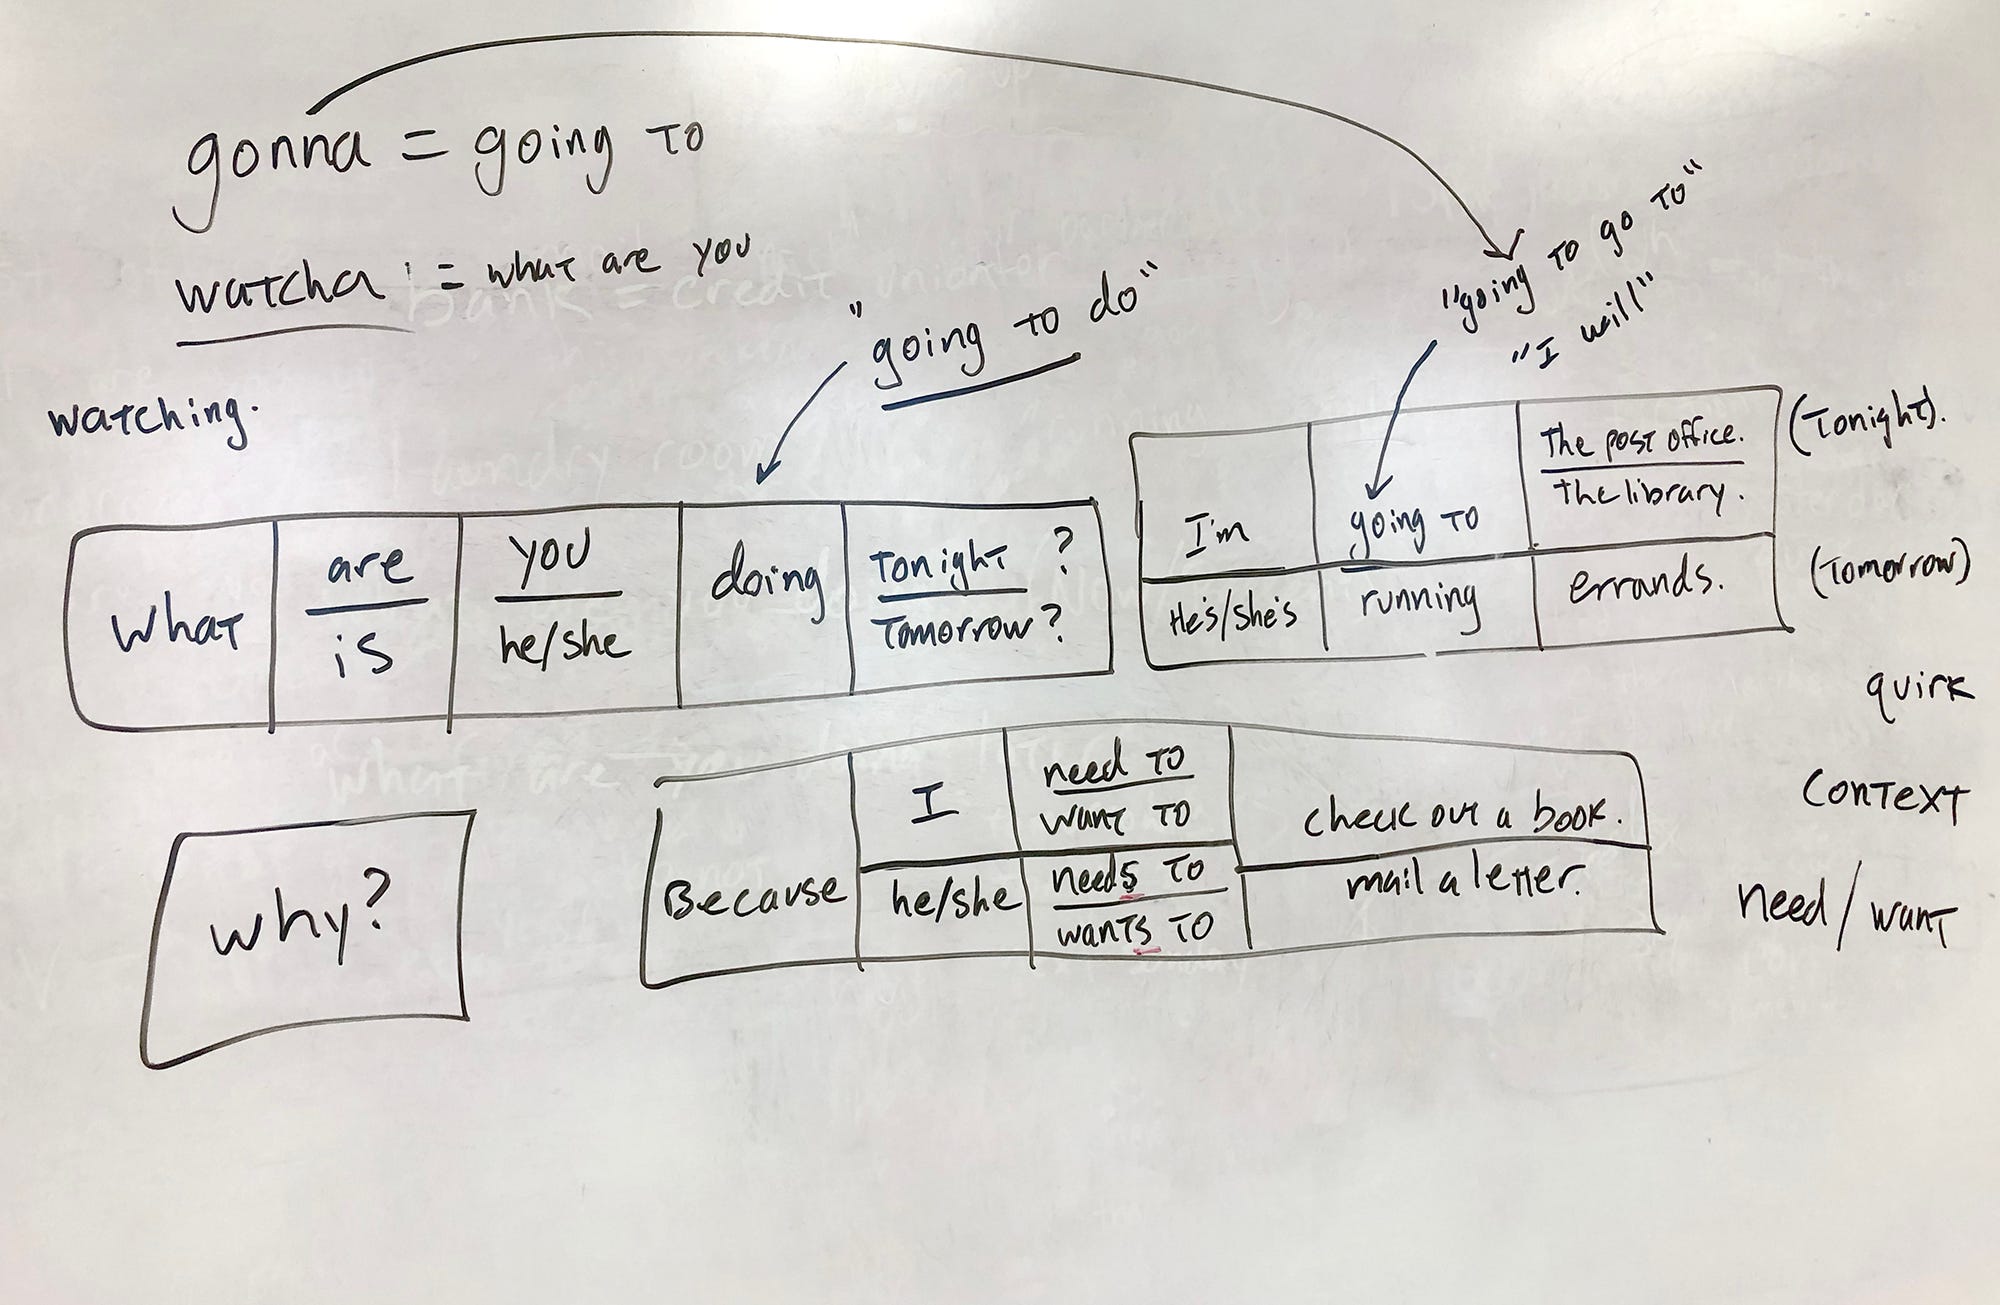 gonna = going to
watcha = what are you
watching.
"going to do"
"going to go to"
"I will"
What
are
is
you
he/she
doing
tonight ?
tomorrow ?
I'm
going to
the post office.
the library.
(tonight).
He's/she's
running
errands.
(tomorrow)
quirk
context
need/want
why?
Because
I
need to
want to
check out a book.
he/she
needs to
wants to
mail a letter.